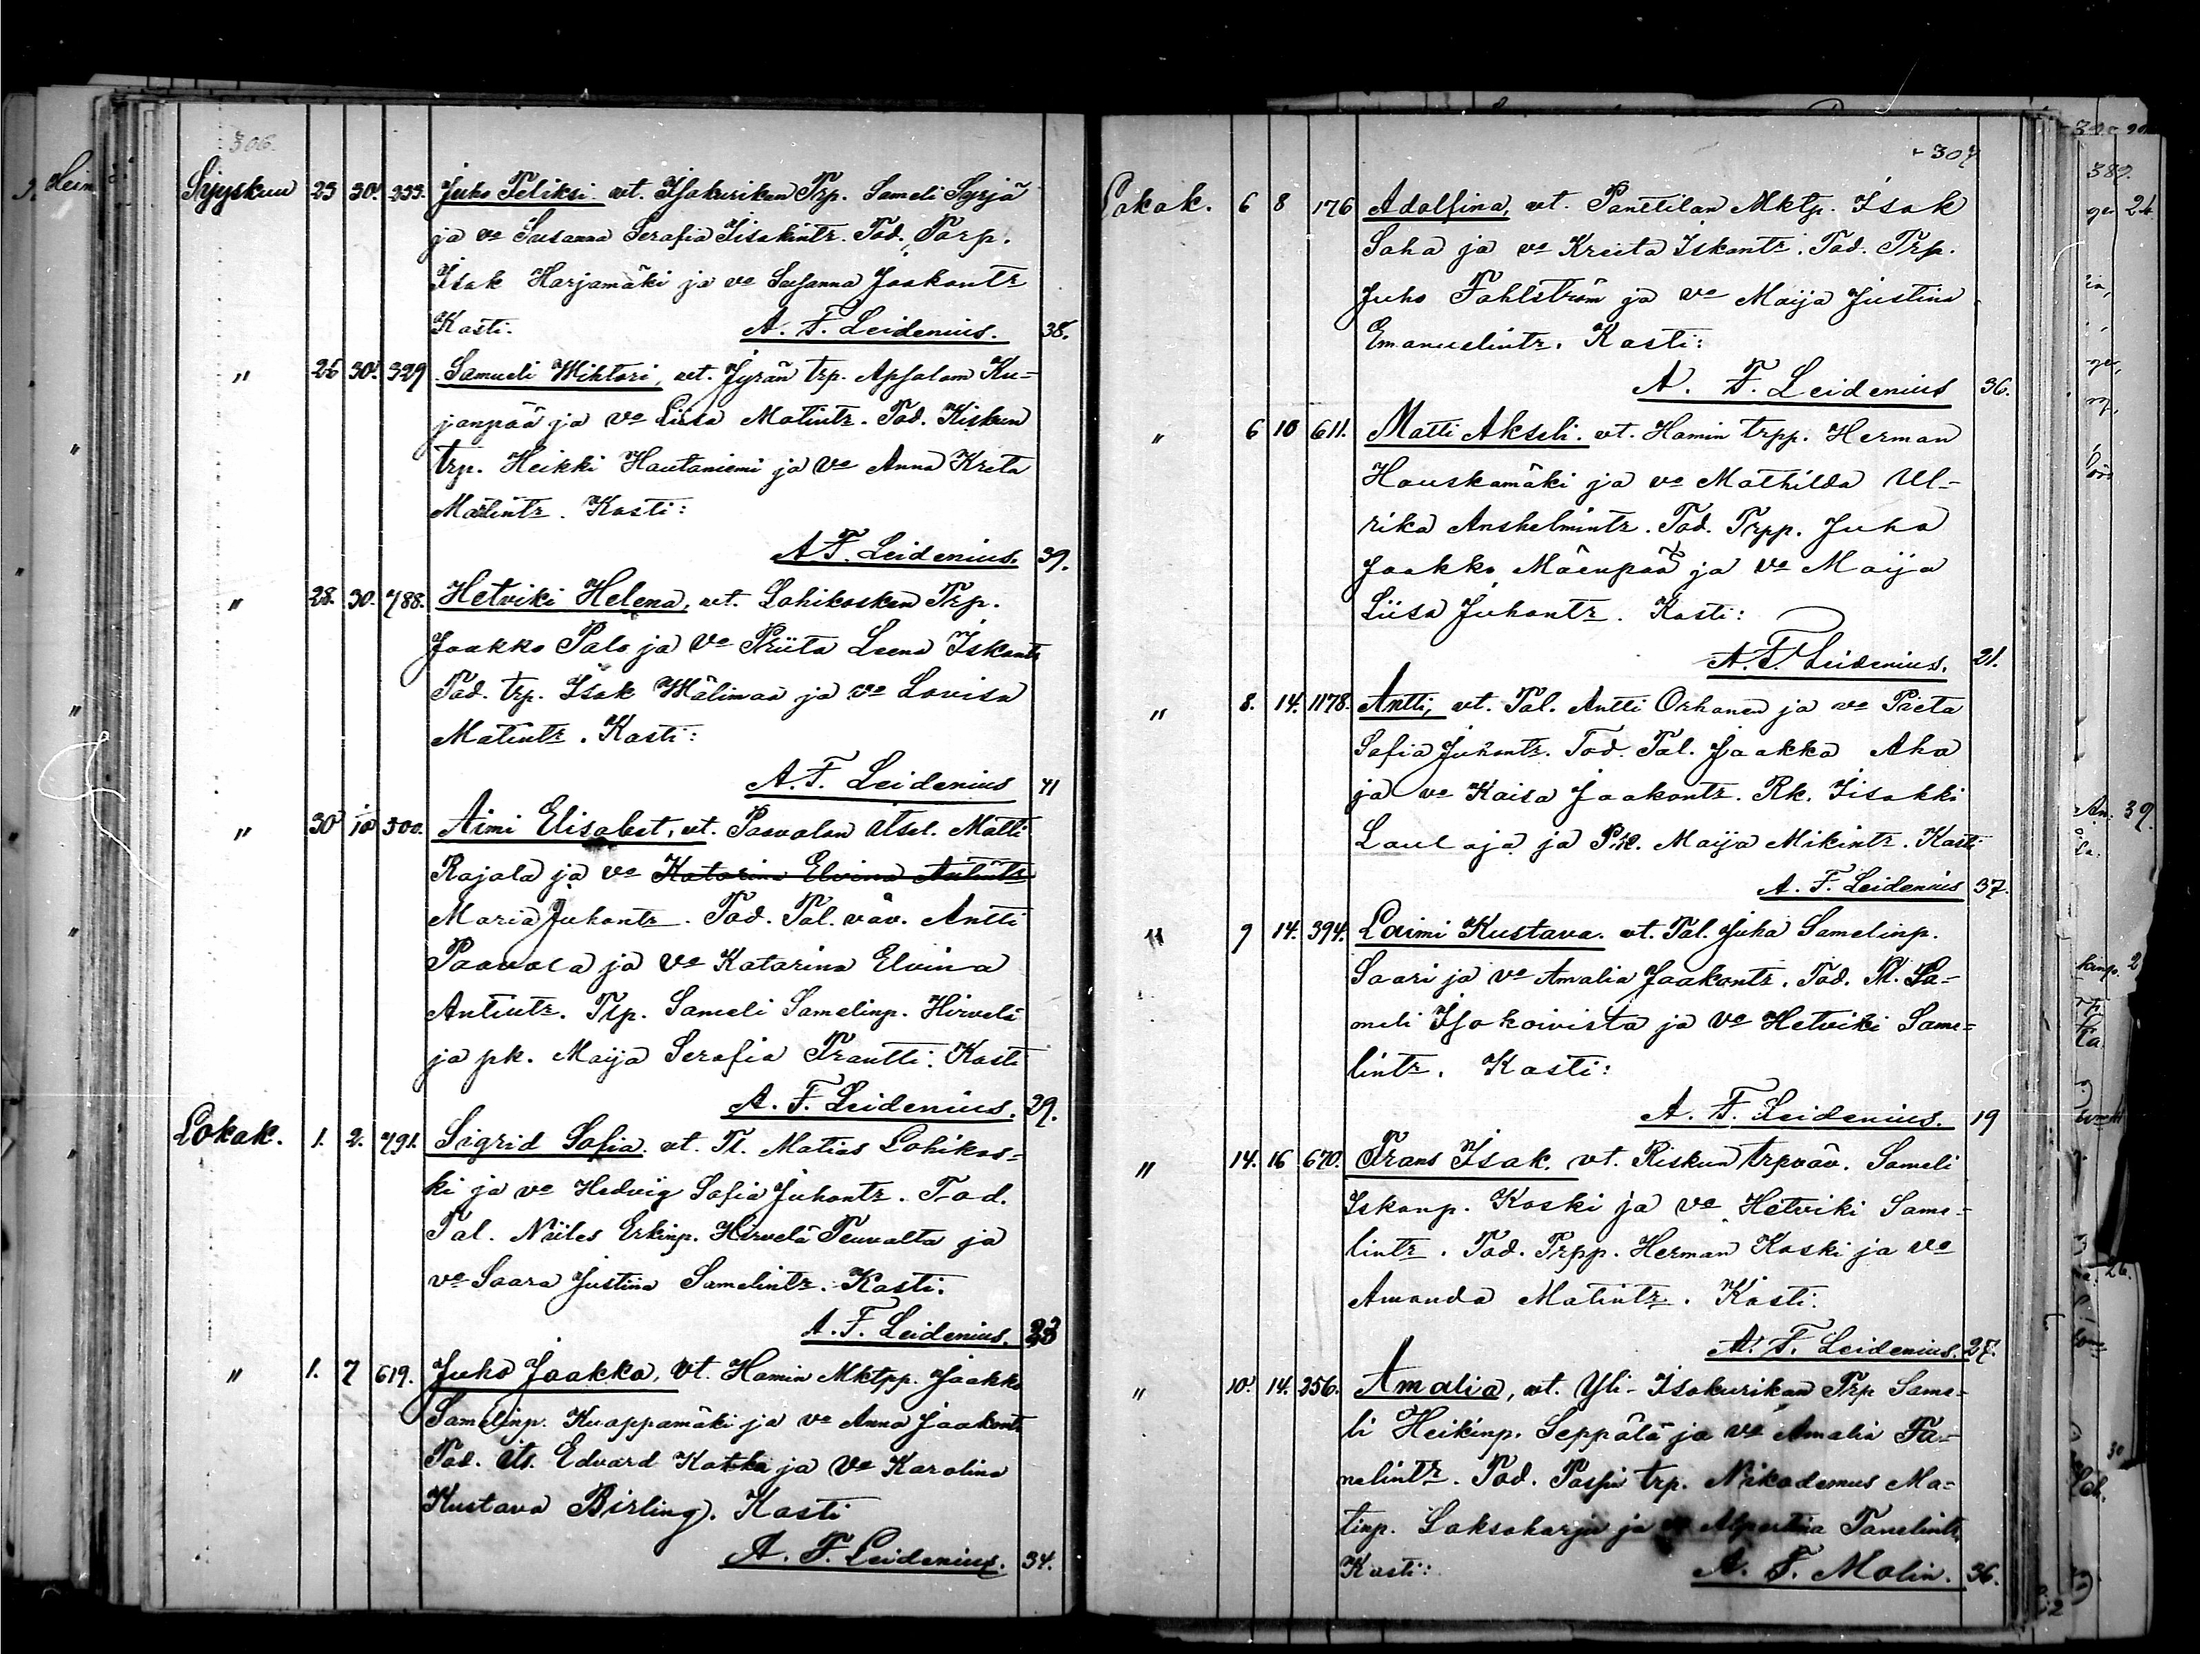 306.
Syyskuu 25 30. 255. Juho Feliksi. vt. Isokurikan Trp. Sameli Syrjä
ja vo Susanna Serafia Iisakintr. Tod. Torp.
Isak Harjamäki ja vo Susanna Jaakontr
Kasti. A. F. Leidenius. 38.
" 26 30. 329 Samueli Wihtori, vt. Jyrän trp. Apsalom Ku-
janpää ja vo Liisa Matintr. Tod. Kiskun
trp. Heikki Hautaniemi ja vo Anna Kreta
Matintr. Kasti:
A. F. Leidenius. 39.
" 28. 30. 788. Hetviki Helena, vt. Lohikosken Trp.
Jaakko Palo ja vo Priita Leena Iskantr
Tod. trp. Isak Wälimaa ja vo Lovisa
Matintr. Kasti:
A. F. Leidenius 41
" 30 10 500. Aimi Elisabet, vt. Paavolan itsel. Matti
Rajala ja vo Katarina Elvina Antintr
Maria Juhontr. Tod. Tal. väv. Antti
Paavola ja vo Katarina Elvina
Antintr. Trp. Sameli Samelinp. Hirvelä
ja pk. Maija Serafia Prantti. Kasti
A. F. Leidenius. 29.
Lokak. 1. 2. 791. Sigrid Sofia. vt. Tl. Matias Lohikos-
ki ja vo Hedvig Sofia Juhontr. Tod.
Tal. Niiles Erkinp. Hirvelä Teuvalta ja
vo Saara Justina Samelintr. Kasti.
A. F. Leidenius. 23
" 1. 7 619. Juho Jaakko, vt. Hamin Mktpp. Jaakko
Samelinp. Kuappamäki ja vo Anna Jaakontr
Tod. its. Edvard Katka ja vo Karolina
Kustava Birling. Kasti
A. F. Leidenius. 34.
307
Lokak. 6 8 176 Adolfina, vt. Panttilan Mktp. Isak
Saha ja vo Kreeta Iskantr. Tod. Trp.
Juho Fahlström ja vo Maija Justina
Emanuelintr. Kasti:
A. F. Leidenius 36.
" 6 10 611. Matti Akseli. vt. Hamin trpp. Herman
Hauskamäki ja vo Mathilda Ul-
rika Anshelmintr. Tod. Trpp. Juha
Jaakko Mäenpää ja vo Maija
Liisa Juhontr. Kasti:
A. F. Leidenius. 21.
" 8. 14. 1178. Antti, vt. Tal. Antti Orhanen ja vo Pieta
Sofia Juhontr. Tod. Tal. Jaakko Aho
ja vo Kaisa Jaakontr. Rk. Iisakki
Laulaja ja Pik. Maija Mikintr. Kasti
A. F. Leidenius 37.
" 9 14. 394. Laimi Kustava. vt. Tal. Juha Samelinp.
Saari ja vo Amalia Jaakontr. Tod. Tl. Sa-
meli Isokoivisto ja vo Hetviki Same-
lintr. Kasti:
A. F. Leidenius. 19
" 14. 16 670. Frans Isak. vt. Riskun trpväv. Sameli
Iskanp. Koski ja vo Hetviki Same-
lintr. Tod. Trpp. Herman Koski ja vo
Amanda Matintr. Kasti.
A. F. Leidenius. 27.
" 10. 14. 256. Amalia, vt. Yli-Isokurikan Trp Same-
li Heikinp. Seppälä ja vo Amalia Ta-
nelintr. Tod. trp. Nikodemus Ma-
tinp. Laksoharju ja vo Alpertina Tanelintr
Kasti: A. F. Malin. 36.